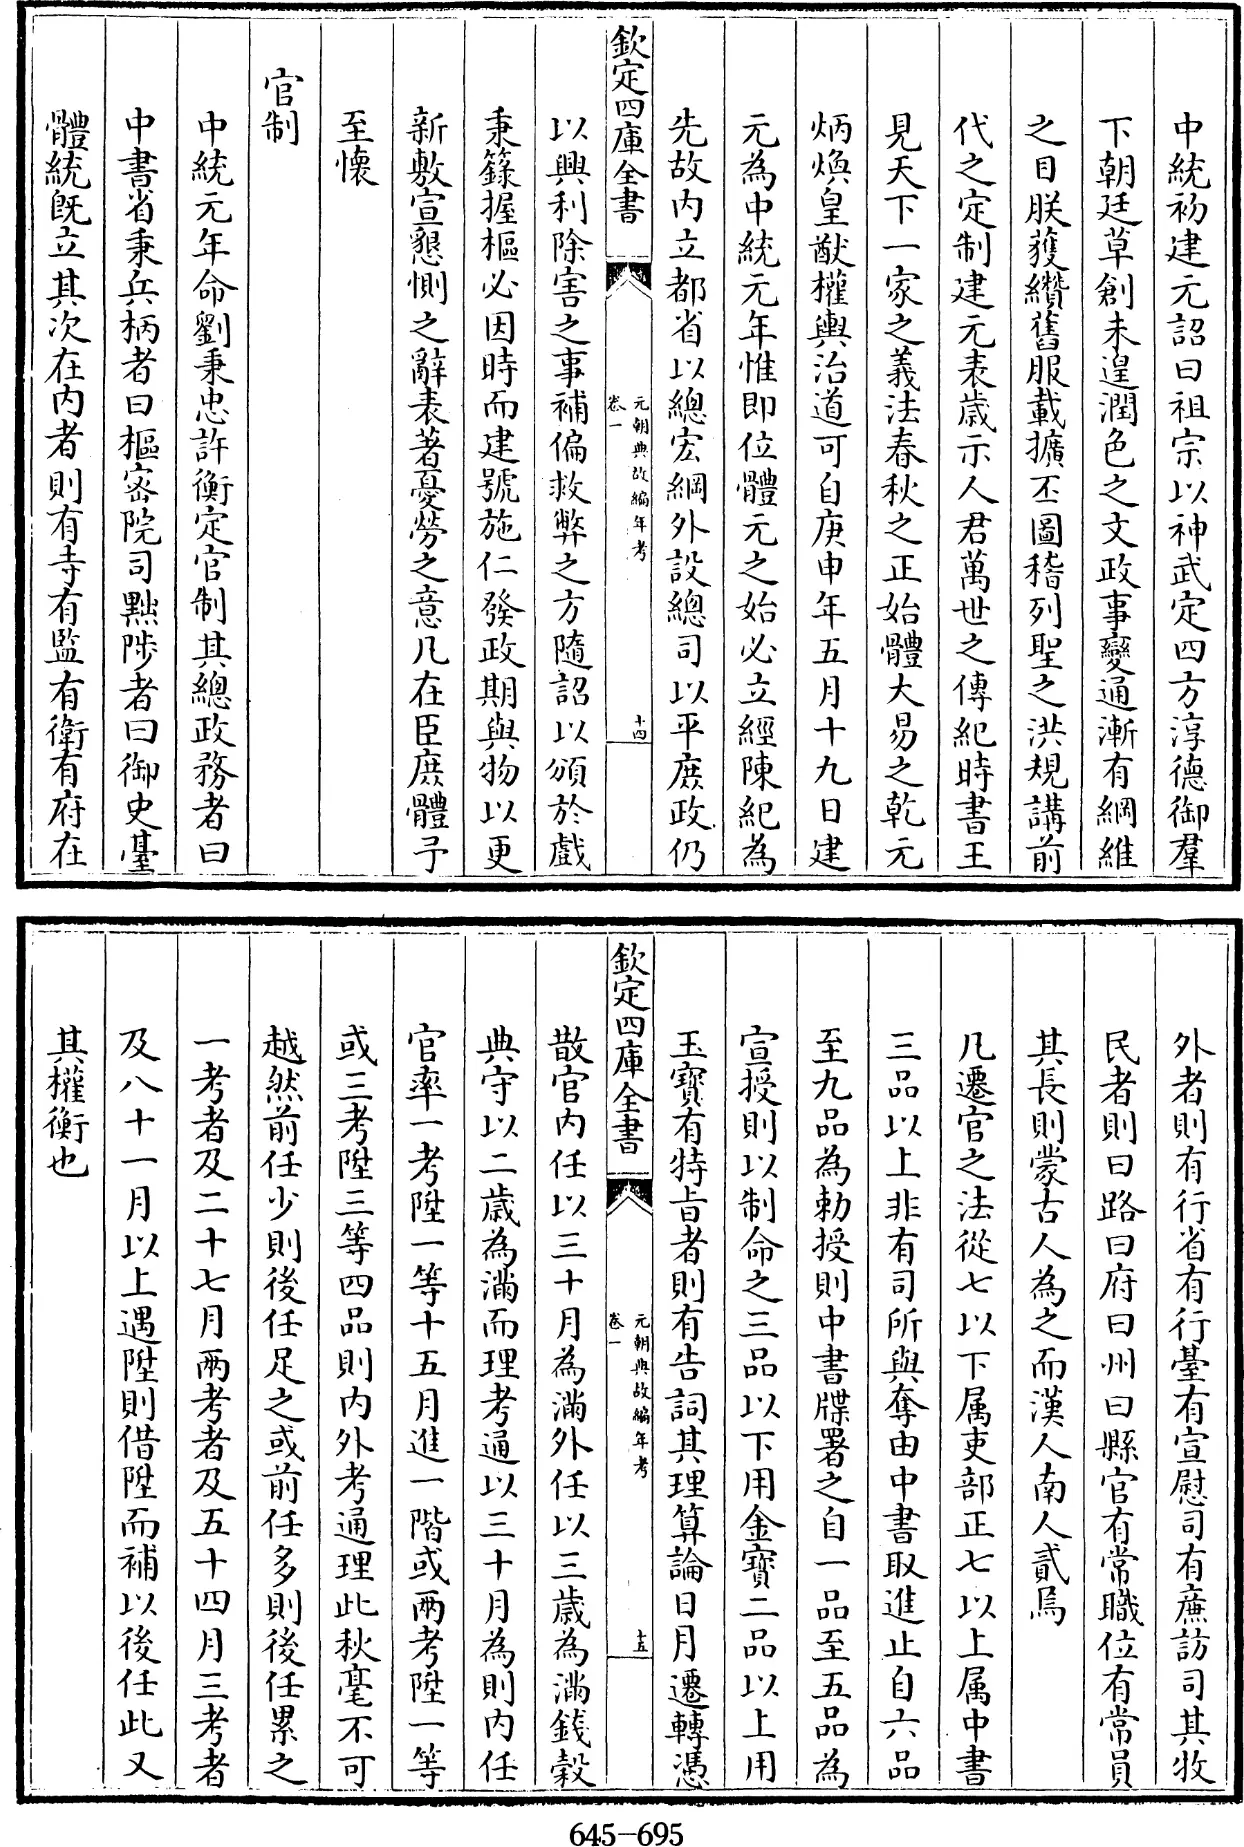 中統初建元詔曰祖宗以神武定四方淳德御羣
下朝廷草創未遑潤色之文政事變通漸有綱維
之目朕獲纘舊服載擴丕圖稽列聖之洪規講前
代之定制建元表歲示人君萬世之傳紀時書王
見天下一家之義法春秋之正始體大易之乾元
炳煥皇猷權輿治道可自庚申年五月十九日建
元為中統元年惟即位體元之始必立經陳紀為
先故内立都省以總宏綱外設總司以平庶政仍
欽定四庫全書
元朝典故編年考
卷一
十四
以興利除害之事補偏救弊之方隨詔以頒於戲
秉籙握樞必因時而建號施仁發政期與物以更
新敷宣懇惻之辭表著憂勞之意凡在臣庶體予
至懷
官制
中統元年命劉秉忠許衡定官制其總政務者曰
中書省秉兵柄者曰樞密院司黜陟者曰御史臺
體統既立其次在内者則有寺有監有衛有府在
外者則有行省有行臺有宣慰司有亷訪司其牧
民者則曰路曰府曰州曰縣官有常職位有常員
其長則蒙古人為之而漢人南人貳焉
凡遷官之法從七以下属吏部正七以上属中書
三品以上非有司所與奪由中書取進止自六品
至九品為勅授則中書牒署之自一品至五品為
宣授則以制命之三品以下用金寶二品以上用
玉寶有特旨者則有告詞其理算論日月遷轉憑
欽定四庫全書
元朝典故編年考
卷一
十五
散官内任以三十月為滿外任以三歲為滿錢穀
典守以二歲為滿而理考通以三十月為則内任
官率一考陞一等十五月進一階或兩考陞一等
或三考陞三等四品則内外考通理此秋毫不可
越然前任少則後任足之或前任多則後任累之
一考者及二十七月兩考者及五十四月三考者
及八十一月以上遇陞則借陞而補以後任此又
其權衡也
645-695